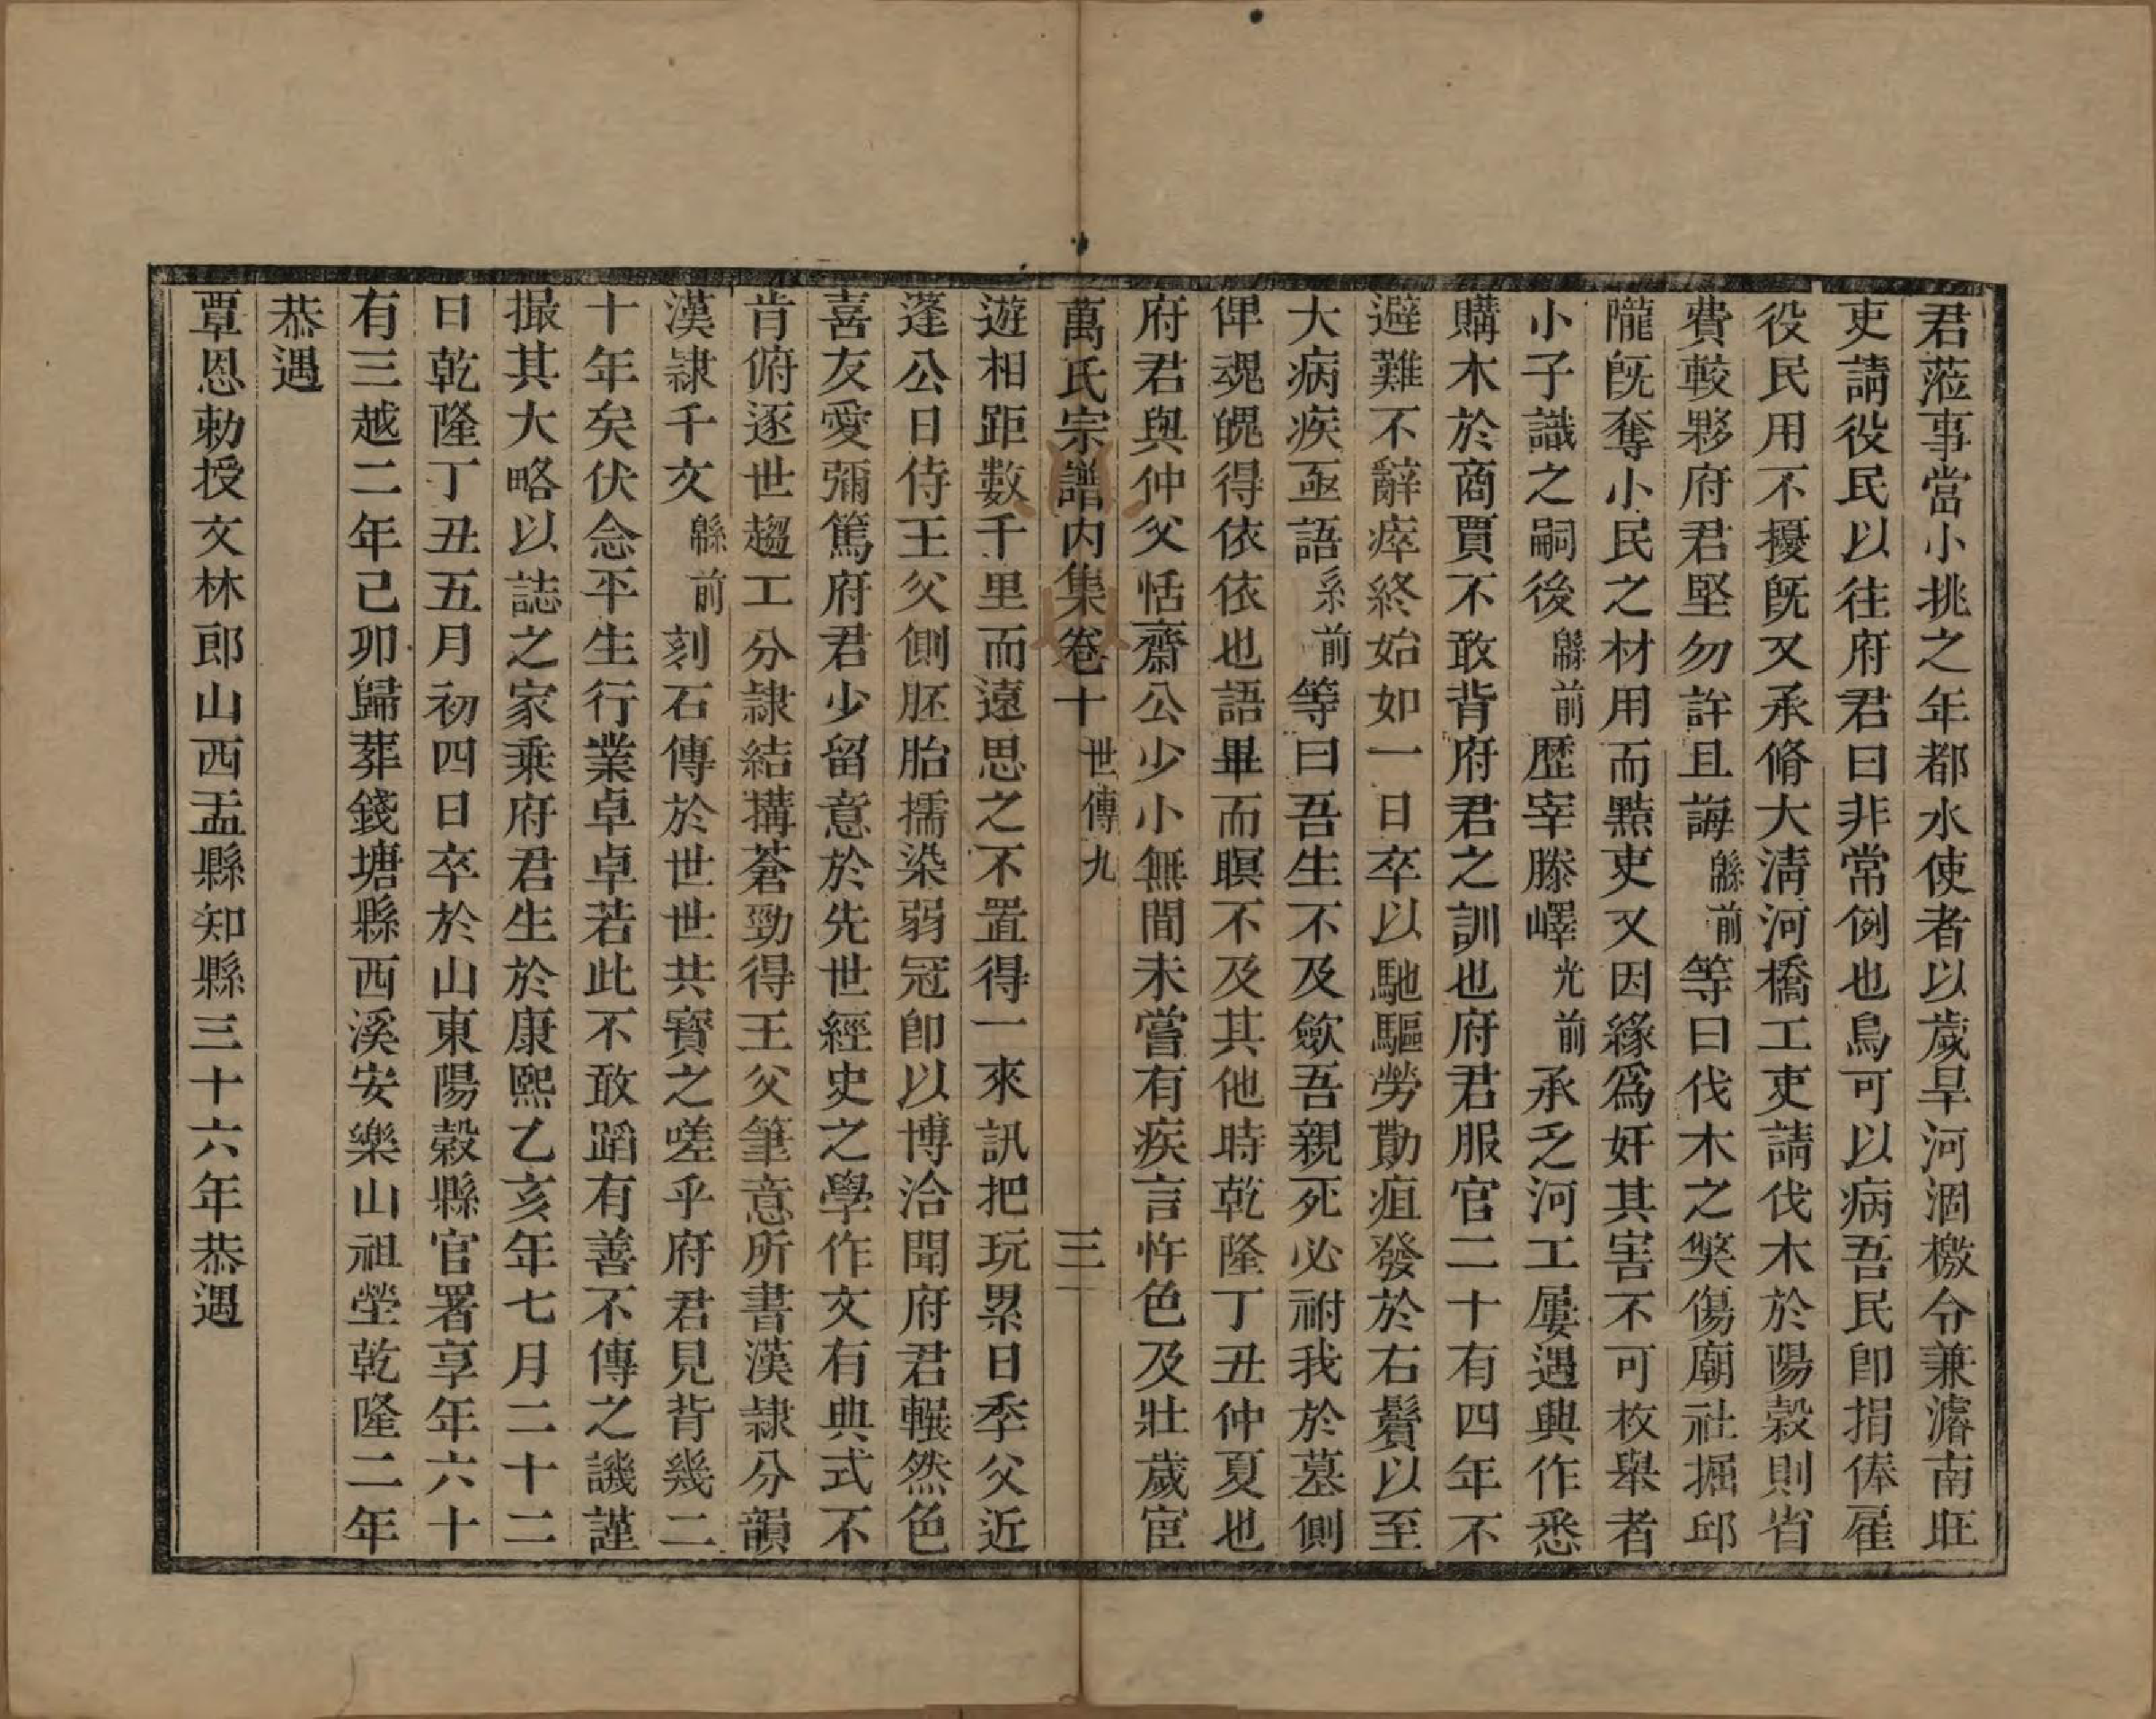 君蒞事當小挑之年都水使者以歲旱河涸檄令兼濬南旺
吏請役民以往府君曰非常例也烏可以病吾民卽捐俸雇
役民用不擾旣又承脩大淸河橋工吏請伐木於陽穀則省
費較夥府君堅勿許且誨緜前等曰伐木之獘傷廟社掘邱
隴旣奪小民之材用而黠吏又因緣爲奸其害不可枚舉者
小子識之嗣後緜前歷宰滕嶧光前承乏河工屢遇興作悉
購木於商賈不敢背府君之訓也府君服官二十有四年不
避難不辭瘁終始如一日卒以馳驅勞勩疽發於右鬢以至
大病疾亟語系前等曰吾生不及歛吾親死必祔我於墓側
俾魂魄得依依也語畢而瞑不及其他時乾隆丁丑仲夏也
府君與仲父恬齋公少小無間未嘗有疾言忤色及壯歲宦
萬氏宗譜內集卷十 世傳九 三
遊相距數千里而遠思之不置得一來訊把玩累日季父近
蓬公日侍王父側胚胎擩染弱冠卽以博洽聞府君輾然色
喜友愛彌篤府君少留意於先世經史之學作文有典式不
肯俯逐世趨工分隷結搆蒼勁得王父筆意所書漢隷分韻
漢隷千文緜前刻石傳於世世共寳之嗟乎府君見背幾二
十年矣伏念平生行業卓卓若此不敢蹈有善不傳之譏謹
撮其大略以誌之家乗府君生於康熙乙亥年七月二十二
日乾隆丁丑五月初四日卒於山東陽穀縣官署享年六十
有三越二年己卯歸葬錢塘縣西溪安樂山祖塋乾隆二年
恭遇
覃恩勅授文林郎山西盂縣知縣三十六年恭遇